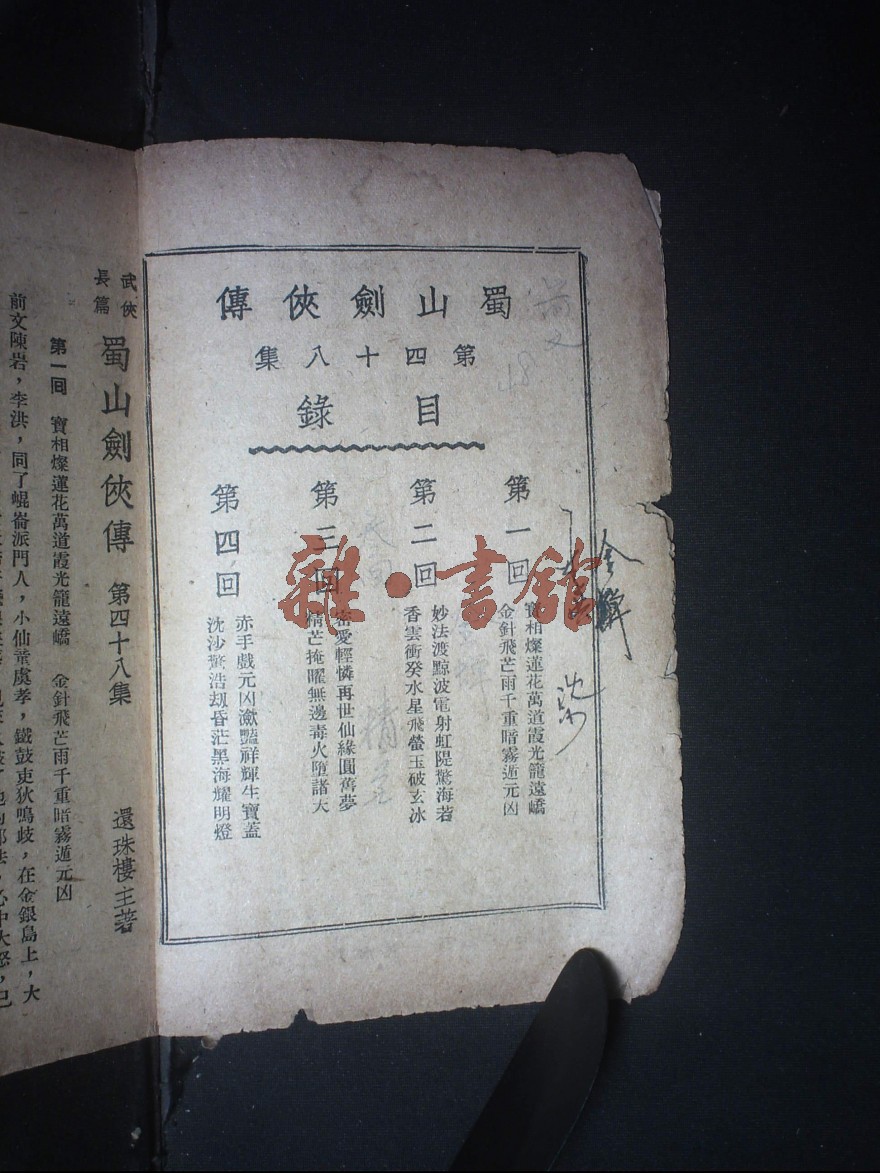 蜀山劍俠傳
第四十八集
目錄
第一回
寶相燦蓮花萬道霞光籠遠嶠
金針飛芒雨千重暗霧遁元凶
第二回
妙法渡黥波電射虹隄驚海若
香雲衝癸水星飛螢玉破玄冰
第三回
密愛輕憐再世仙緣圓舊夢
精芒掩曜無邊毒火墮諸大
第四回
赤手戲元凶瀲豔祥輝生寶蓋
沈沙驚浩刼昏茫黑海耀明燈
雜·書館
48
武俠長篇
蜀山劍俠傳 第四十八集 還珠樓主著
第一回 寶相燦蓮花萬道霞光籠遠嶠 金針飛芒雨千重暗霧遁元凶
前文陳岩，李洪，同了崐崙派門人，小仙童虞孝，鐵鼓吏狄鳴歧，在金銀島上，大